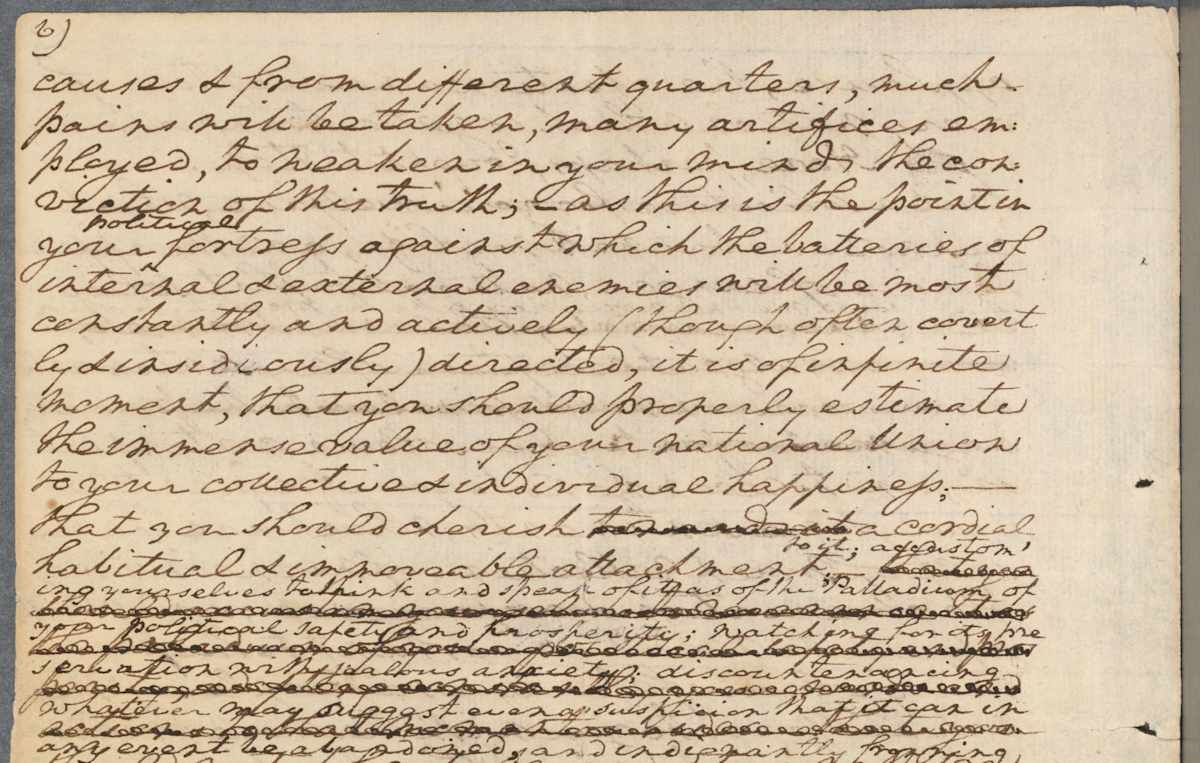 6)
causes & from different quarters, much
pains will be taken, many artifices em:
ployed, to weaken in your minds the con:
viction of this truth; – as this is the point in
political
your fortress against which the batteries of
internal & external enemies will be most
constantly and actively (though often covert
ly & insidiously) directed, it is of infinite
moment, that you should properly estimate
the immense value of your national Union
to your collective & individual happiness; —
that you should cherish towards it a cordial
to it; accustom'
habitual & immoveable attachment
ing yourselves to think and speak of it as of the Palladium of
your political safety and prosperity; watching for its pre
servation with jealous anxiety; discountenancing
whatever may suggest even a suspicion that it can in
any event be abandoned, and indignantly frowning